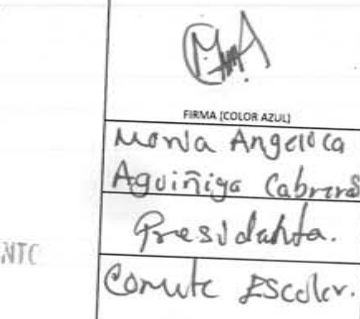 FIRMA (COLOR AZUL)
Maria Angelica
Aguiñiga Cabrera
Presidenta.
NTC
Comite Escolar.